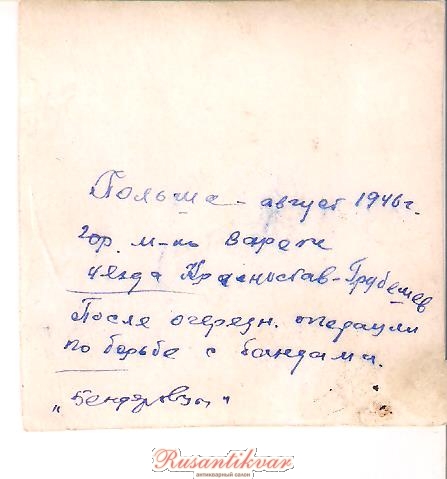 Польша - август 1946 г.
гор. м-нь Вареж
уезда Красностав-Грубешев
После очередн. операции
по борьбе с бандами.
„Бендеровцы"
Rusantikvar
антикварный салон